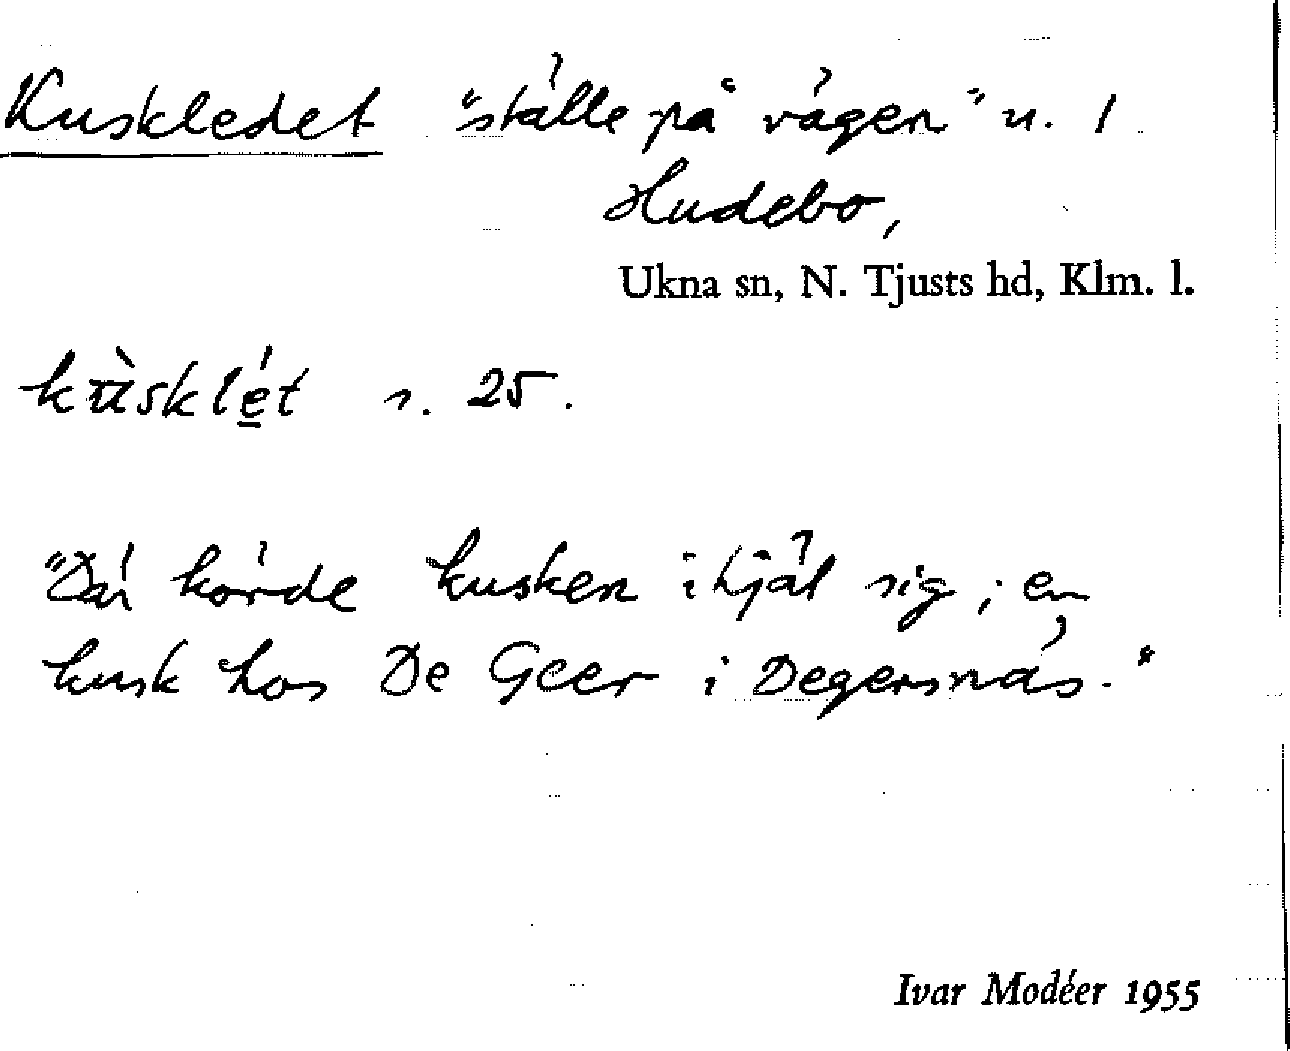 Kuskledet "ställe på vägen" u. 1
Hudebo,
Ukna sn, N. Tjusts hd, Klm. l.
kùsklét n. 25.
"Där körde kusken ihjäl sig; en
kusk hos De Geer i Degersnäs."
Ivar Modéer 1955